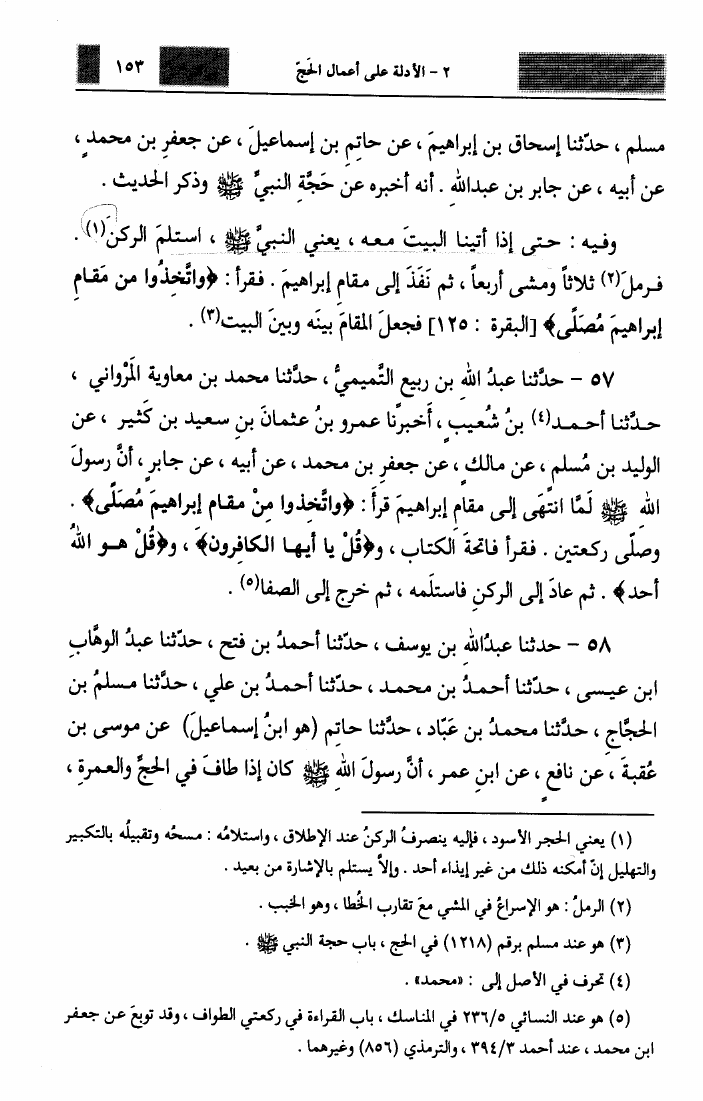 ٢ - الأدلة على أعمال الحَجّ ١٥٣
مسلم ، حدّثنا إسحاق بن إبراهيمَ ، عن حاتِمِ بن إسماعيلَ ، عن جعفرِ بن محمدٍ ،
عن أبيه ، عن جابر بن عبداللهِ . أنه أخبره عن حَجَّةِ النبيِّ ﷺ وذكر الحديث .
وفيه : حتى إذا أتينا البيتَ معه ، يعني النبيَّ ﷺ ، استلمَ الركنَ(١) .
فرملَ(٢) ثلاثاً ومشى أربعاً ، ثم نَفَذَ إلى مقام إبراهيمَ . فقرأ : ﴿واتَّخِذُوا من مَقَامِ
إبراهيمَ مُصَلَّى﴾ [البقرة : ١٢٥] فجعلَ المقامَ بينَه وبينَ البيت(٣) .
٥٧ - حدَّثنا عبدُ اللهِ بن ربيع التَّميميُّ ، حدَّثنا محمد بن معاوية المَرْواني ،
حدَّثنا أحمد(٤) بنُ شُعيبٍ ، أَخبرَنا عمرو بنُ عثمانَ بنِ سعيد بن كَثير ، عن
الوليد بن مُسلم ، عن مالكٍ ، عن جعفرِ بن محمد ، عن أبيه ، عن جابرٍ ، أنَّ رسولَ
اللهِ ﷺ لَمَّا انتَهَى إلى مقامِ إبراهيمَ قرأَ : ﴿واتَّخِذوا مِنْ مقام إبراهيمَ مُصَلَّى﴾ .
وصلَّى ركعتين . فقرأ فاتحةَ الكتاب ، و﴿قُلْ يا أيها الكافِرون﴾ ، و﴿قُلْ هو اللهُ
أحد﴾ . ثم عادَ إلى الركنِ فاستلَمه ، ثم خرج إلى الصفا(٥) .
٥٨ - حدثنا عبدُاللهِ بن يوسف ، حدّثنا أحمدُ بن فتح ، حدّثنا عبدُ الوهَّابِ
ابن عيسى ، حدّثنا أحمدُ بن محمد ، حدّثنا أحمدُ بن علي ، حدَّثنا مسلمُ بن
الحجَّاج ، حدَّثنا محمدُ بن عَبَّاد ، حدَّثنا حاتِم (هو ابنُ إسماعيلَ) عن موسى بن
عُقبةَ ، عن نافعٍ ، عن ابنِ عمر ، أنَّ رسولَ اللهِ ﷺ كان إذا طافَ في الحجِّ والعمرةِ ،
(١) يعني الحجر الأسود ، فإليه ينصرفُ الركنُ عند الإطلاق ، واستلامُه : مسحُه وتقبيلُه بالتكبير
والتهليل إنْ أمكنه ذلك من غير إيذاء أحد . وإلاّ يستلم بالإشارة من بعيد .
(٢) الرملُ : هو الإسراعُ في المشي معَ تقارب الخُطا ، وهو الخبب .
(٣) هو عند مسلم برقم (١٢١٨) في الحج ، باب حجة النبي ﷺ .
(٤) تحرف في الأصل إلى : «محمد» .
(٥) هو عند النسائي ٢٣٦/٥ في المناسك ، باب القراءة في ركعتي الطواف ، وقد توبعَ عن جعفر
ابن محمد ، عند أحمد ٣٩٤/٣ ، والترمذي (٨٥٦) وغيرهما .